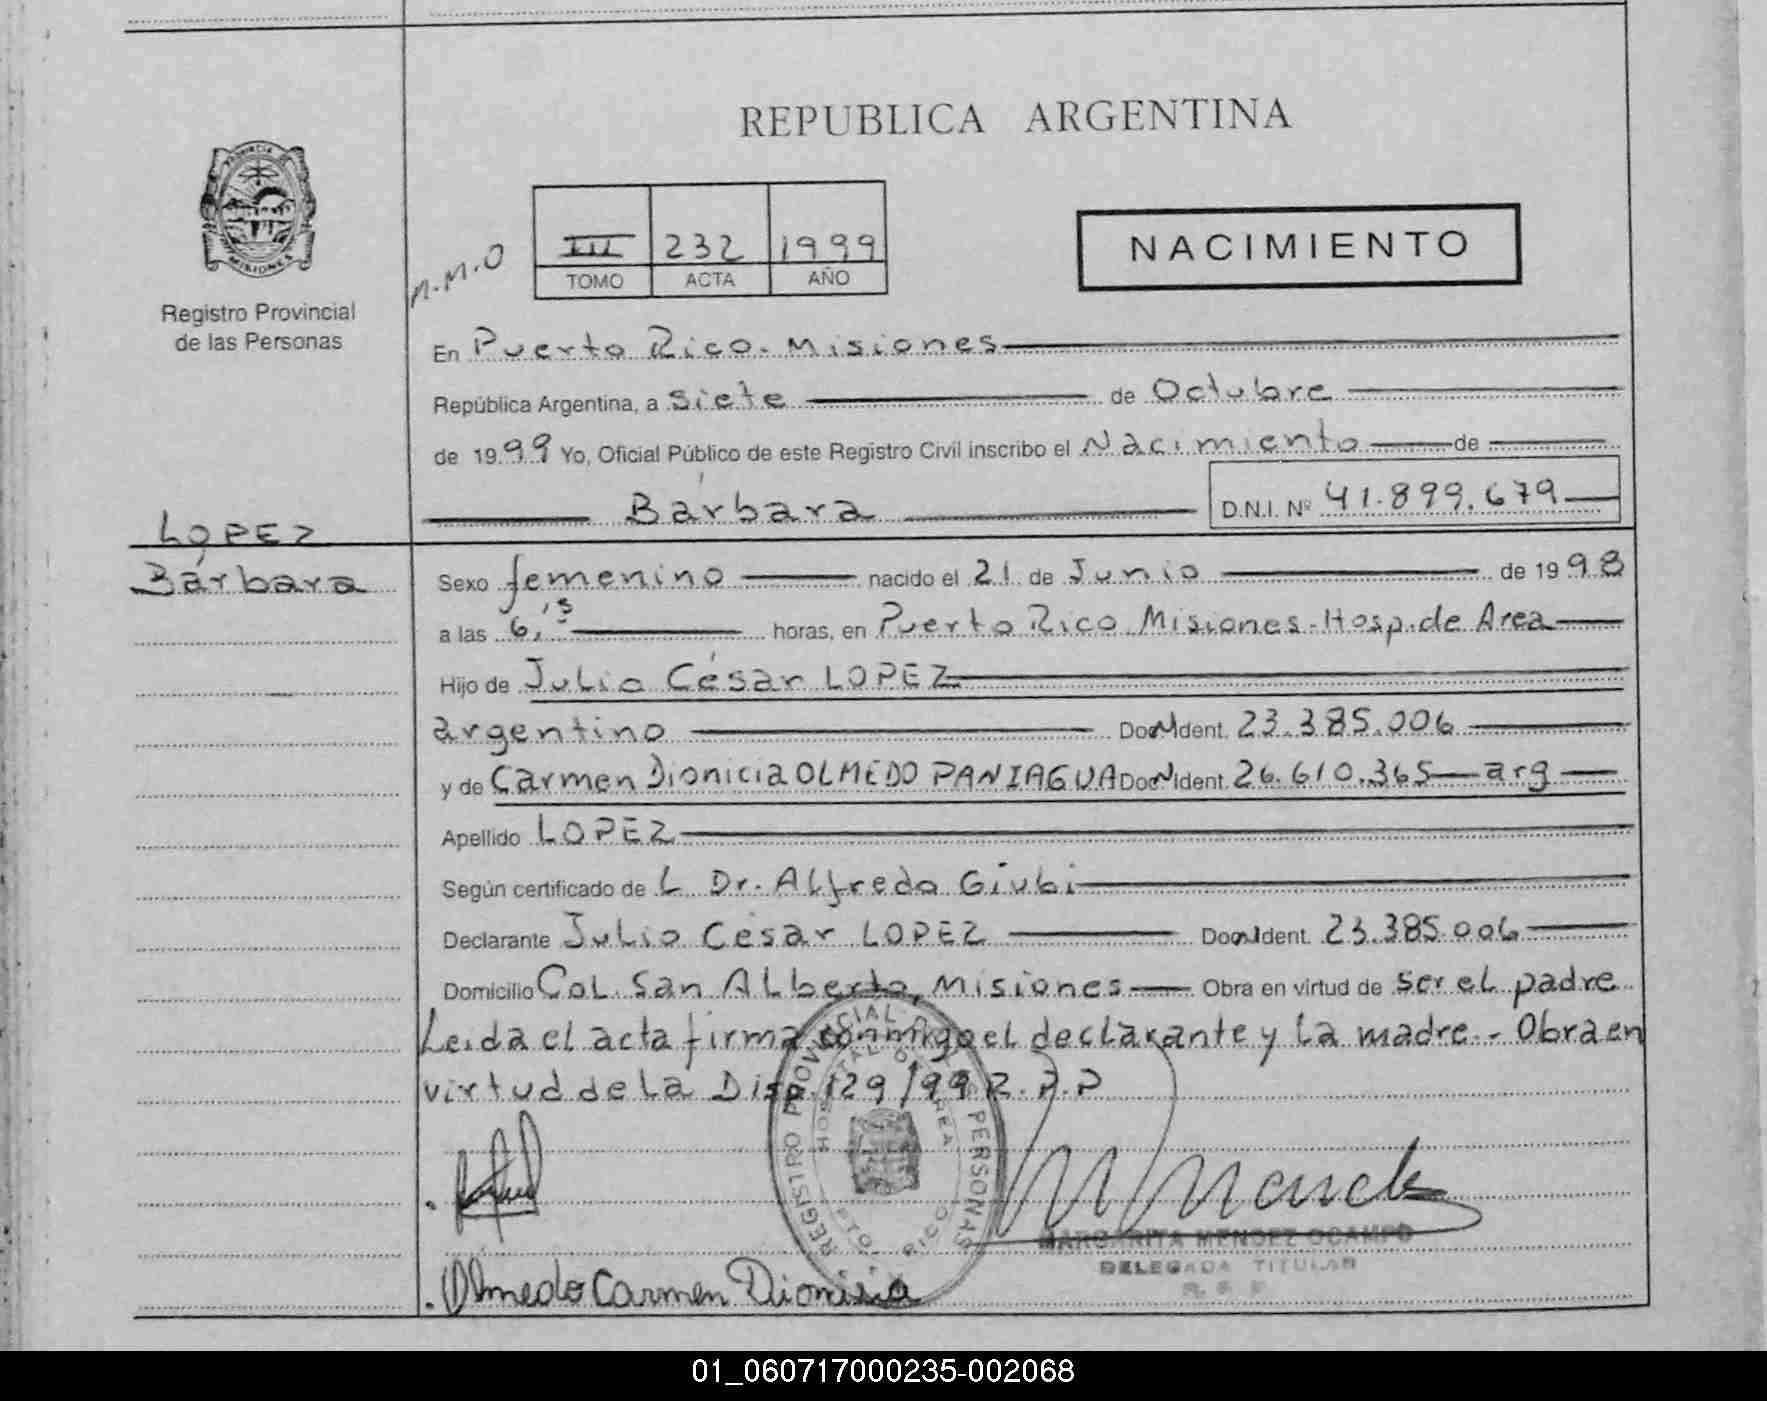 REPUBLICA ARGENTINA
PROVINCIA DE
MISIONES
Registro Provincial
de las Personas
M.M.O
III 232 1999
TOMO ACTA AÑO
NACIMIENTO
En Puerto Rico. Misiones
República Argentina, a siete de Octubre
de 1999 Yo, Oficial Público de este Registro Civil inscribo el Nacimiento de
Bárbara D.N.I. Nº 41.899.679
LOPEZ
Bárbara
Sexo femenino nacido el 21 de Junio de 1998
a las 6,15 horas, en Puerto Rico Misiones-Hosp.de Area
Hijo de Julio César LOPEZ
argentino Doc. Ident. 23.385.006
y de Carmen Dionicia OLMEDO PANIAGUA Doc. Ident. 26.610.365 arg
Apellido LOPEZ
Según certificado de L Dr. Alfredo Giubi
Declarante Julio César LOPEZ Doc. Ident. 23.385.006
Domicilio Col. San Alberto, Misiones Obra en virtud de ser el padre
Leida el acta firma conmigo el declarante y la madre.- Obra en
virtud de la Disp. 129/99 R.P.P
REGISTRO PROVINCIAL DE LAS PERSONAS
HOSPITAL DE AREA
PTO. RICO
MARGARITA MENDEZ OCAMPO
DELEGADA TITULAR
Olmedo Carmen Dionisia
01_060717000235-002068